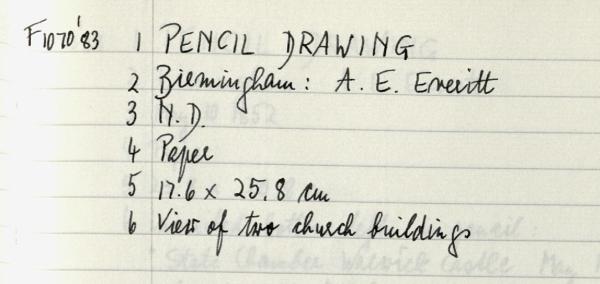 F1070'83 1 PENCIL DRAWING
2 Birmingham: A. E. Everitt
3 N.D.
4 Paper
5 17.6 x 25.8 cm
6 View of two church buildings